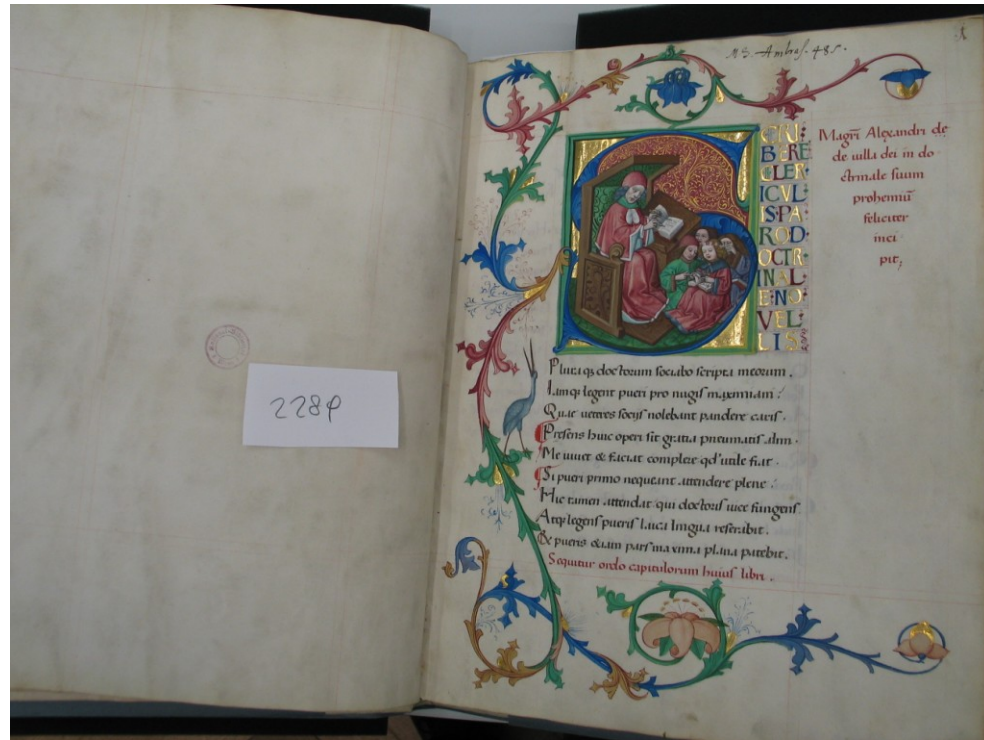 MS. Ambras. 481.
1
2284
S
CRI
BERE
CLER
ICVL
IS·PA
RO·D
OCTR
INAL
E·NO
VEL
LIS
Magrī Alexandri de
de uilla dei in do
ctrinale suum
prohemiū
feliciter
inci
pit;
Pluraqꝫ doctorum sociabo scripta meorum.
Iamqꝫ legent pueri pro nugis maximiani:
Quae ueteres socijs nolebant pandere caris.
Presens huic operi sit gratia pneumatis almi.
Me iuuet & faciat complere qd' utile fiat.
Si pueri primo nequeant attendere plene:
Hic tamen attendat qui doctoris uice fungens.
Atqꝫ legens pueris laica lingua reserabit.
Et pueris etiam pars maxima plana patebit.
Sequitur ordo capitulorum huius libri.